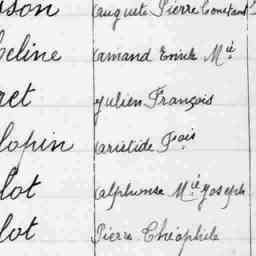 sson auguste Pierre Constant
beline amand Émile M^ie
ret Julien François
lopin aristide F^ois
lot alphonse M^ie Joseph
lot Pierre Théophile